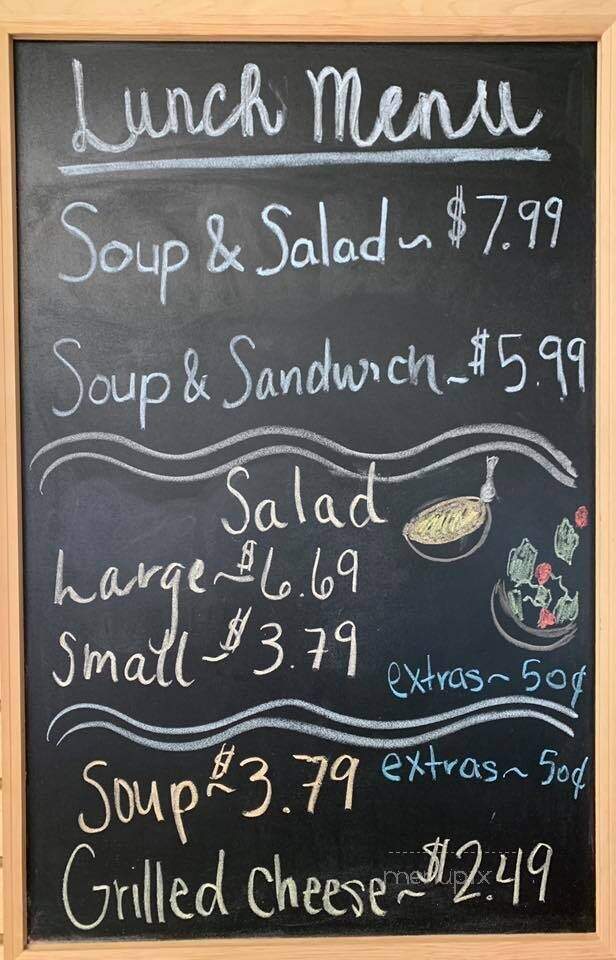 Lunch Menu
Soup & Salad ~ $7.99
Soup & Sandwich ~ $5.99
Salad
Large ~ $6.69
Small ~ $3.79
extras ~ 50¢
Soup ~ $3.79
extras ~ 50¢
Grilled Cheese ~ $2.49
menupix